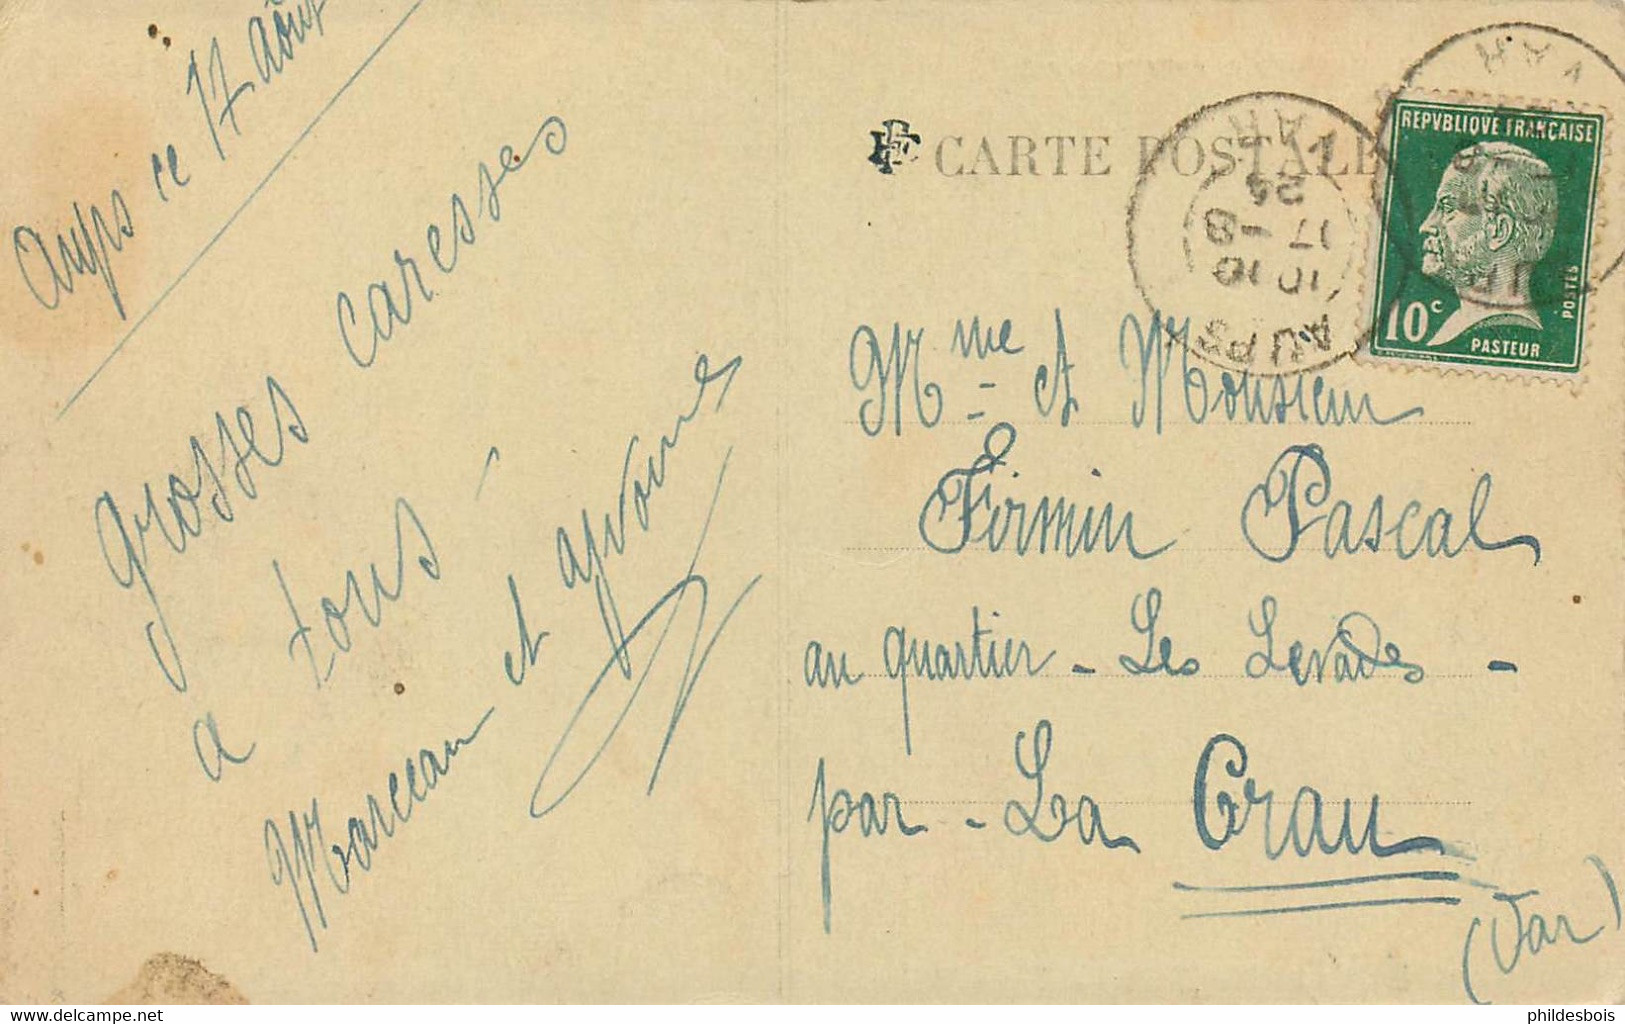 Aups ce 17 Août
grosses caresses
a tous -
Marceau et
CARTE POSTALE
AUPS
10 10
17 - 8
24
VAR
REPVBLIQVE FRANCAISE
10c
PASTEUR
POSTES
Mme et Monsieur
Firmin Pascal
au quartier - Les Levades -
par - La Crau
(Var)
phildesbois